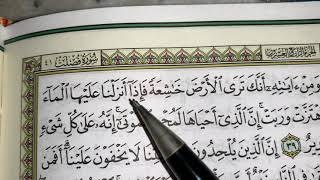 سُورَةُ فُصِّلَتْ ٤١
وَمِنْ ءَايَٰتِهِۦٓ أَنَّكَ تَرَى ٱلْأَرْضَ خَٰشِعَةً فَإِذَآ أَنزَلْنَا عَلَيْهَا ٱلْمَآءَ
ٱهْتَزَّتْ وَرَبَتْ إِنَّ ٱلَّذِىٓ أَحْيَاهَا لَمُحْىِ ٱلْمَوْتَىٰٓ إِنَّهُۥ عَلَىٰ كُلِّ شَىْءٍ
٣٩ إِنَّ ٱلَّذِينَ يُلْحِدُونَ لَا يَخْفَوْنَ عَلَيْنَآ أَفَمَن